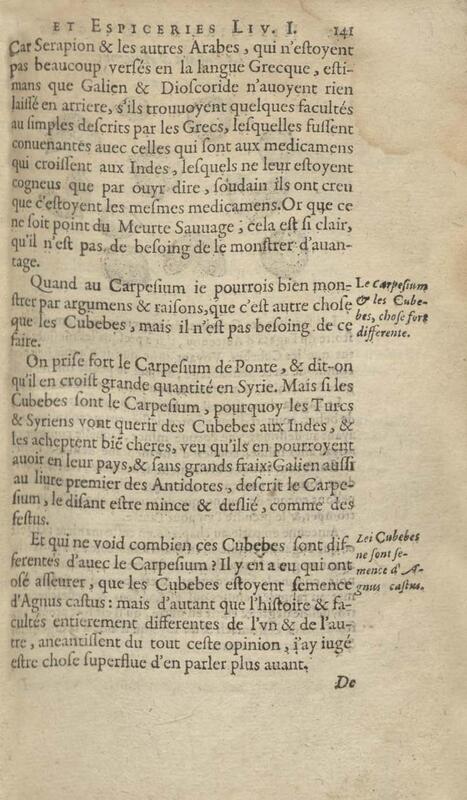 ET ESPICERIES LIV. I. 141
Car Serapion & les autres Arabes, qui n'eſtoyent
pas beaucoup verſés en la langue Grecque, eſti-
mans que Galien & Dioſcoride n'auoyent rien
laiſſé en arriere, s'ils trouuoyent quelques facultés
au ſimples deſcrits par les Grecs, leſquelles fuſſent
conuenantes auec celles qui ſont aux medicamens
qui croiſſent aux Indes, leſquels ne leur eſtoyent
cogneus que par ouyr dire, ſoudain ils ont creu
que c'eſtoyent les meſmes medicamens. Or que ce
ne ſoit point du Meurte Sauuage; cela eſt ſi clair,
qu'il n'eſt pas de beſoing de le monſtrer d'auan-
tage.
Quand au Carpeſium ie pourrois bien mon-
ſtrer par argumens & raiſons, que c'eſt autre choſe
que les Cubebes, mais il n'eſt pas beſoing de ce
faire.
Le Carpeſium
& les Cube-
bes, choſe fort
differente.
On priſe fort le Carpeſium de Ponte, & dit-on
qu'il en croiſt grande quantité en Syrie. Mais ſi les
Cubebes ſont le Carpeſium, pourquoy les Turcs
& Syriens vont querir des Cubebes aux Indes, &
les acheptent biẽ cheres, veu qu'ils en pourroyent
auoir en leur pays, & ſans grands fraix? Galien auſſi
au liure premier des Antidotes, deſcrit le Carpe-
ſium, le diſant eſtre mince & deſlié, comme des
feſtus.
Et qui ne void combien ces Cubebes ſont dif-
ferentes d'auec le Carpeſium? Il y en a eu qui ont
oſé aſſeurer, que les Cubebes eſtoyent ſemence
d'Agnus caſtus: mais d'autant que l'hiſtoire & fa-
cultés entierement differentes de l'vn & de l'au-
tre, aneantiſſent du tout ceſte opinion, j'ay iugé
eſtre choſe ſuperflue d'en parler plus auant.
Lei Cubebes
ne ſont ſe-
mence d'A-
gnus caſtus.
De